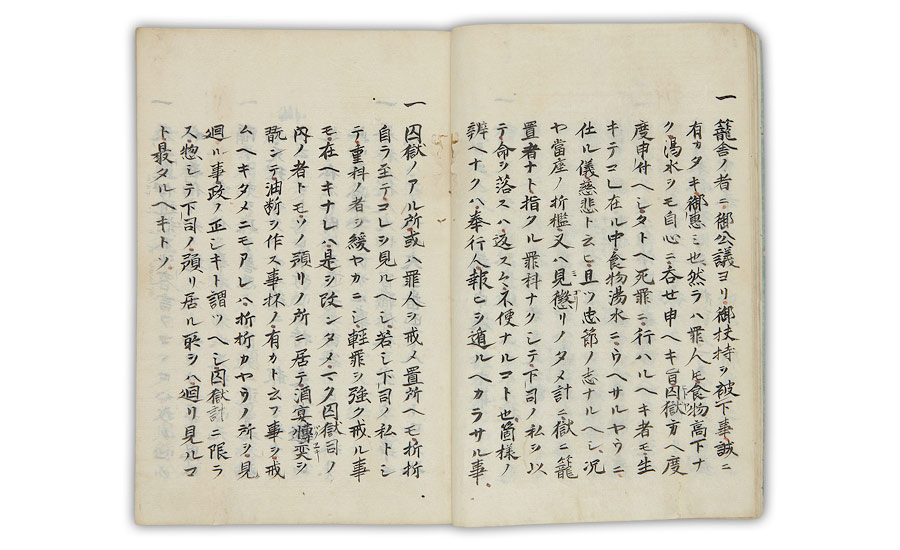 一 籠舎ノ者ニ御公議ヨリ御扶持ヲ被下事誠ニ
有カタキ御恵ミ也然ラハ罪人𪜈食物高下ナ
ク湯水ヲモ自心ニ呑セ申ヘキ旨囚獄方ヘ度
度申付ヘシタトヘ死罪ニ行ハルヘキ者モ生
キテコレ在ル中食物湯水ニウヘサルヤウニ
仕ル儀慈悲ト云ヒ且ツ忠節ノ志ナルヘシ況
ヤ當座ノ折檻又ハ見懲リノタメ計ニ獄ニ籠
置者ナト指タル罪科ナクシテ下司ノ私シ以
テ命ヲ落スハ返ス〱不便ナルコト也箇様ノ
辨ヘナクハ奉行人報ヒヲ遁ルヘカラサル事
一 囚獄ノアル所或ハ罪人ヲ戒メ置所ヘモ折折
自ラ至テコレヲ見ルヘシ若シ下司ノ私トシ
テ重科ノ者ヲ緩ヤカニシ軽罪ヲ強ク戒ル事
モ在ヘキナレハ是ヲ改ンタメマタ囚獄司ノ
内ノ者トモソノ預リノ所ニ居テ酒宴博奕シ
翫ンテ油断ヲ作ス事抔ノ有カト云フ事ヲ戒
ムヘキタメニモアレハ折折カヤウノ所ヲ見
廻ル事政ノ正シキト謂ツヘシ囚獄計ニ限ラ
ス惣シテ下司ノ預リ居ル所ヲハ廻リ見ルコ
ト最タルヘキトソ